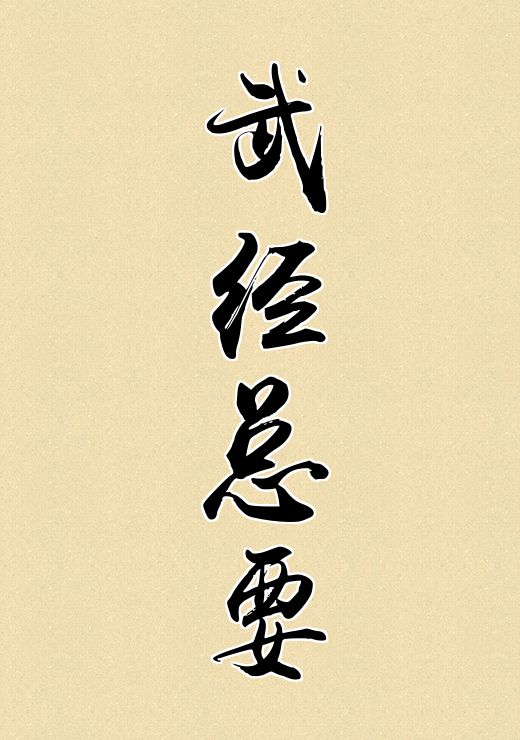 武经总要